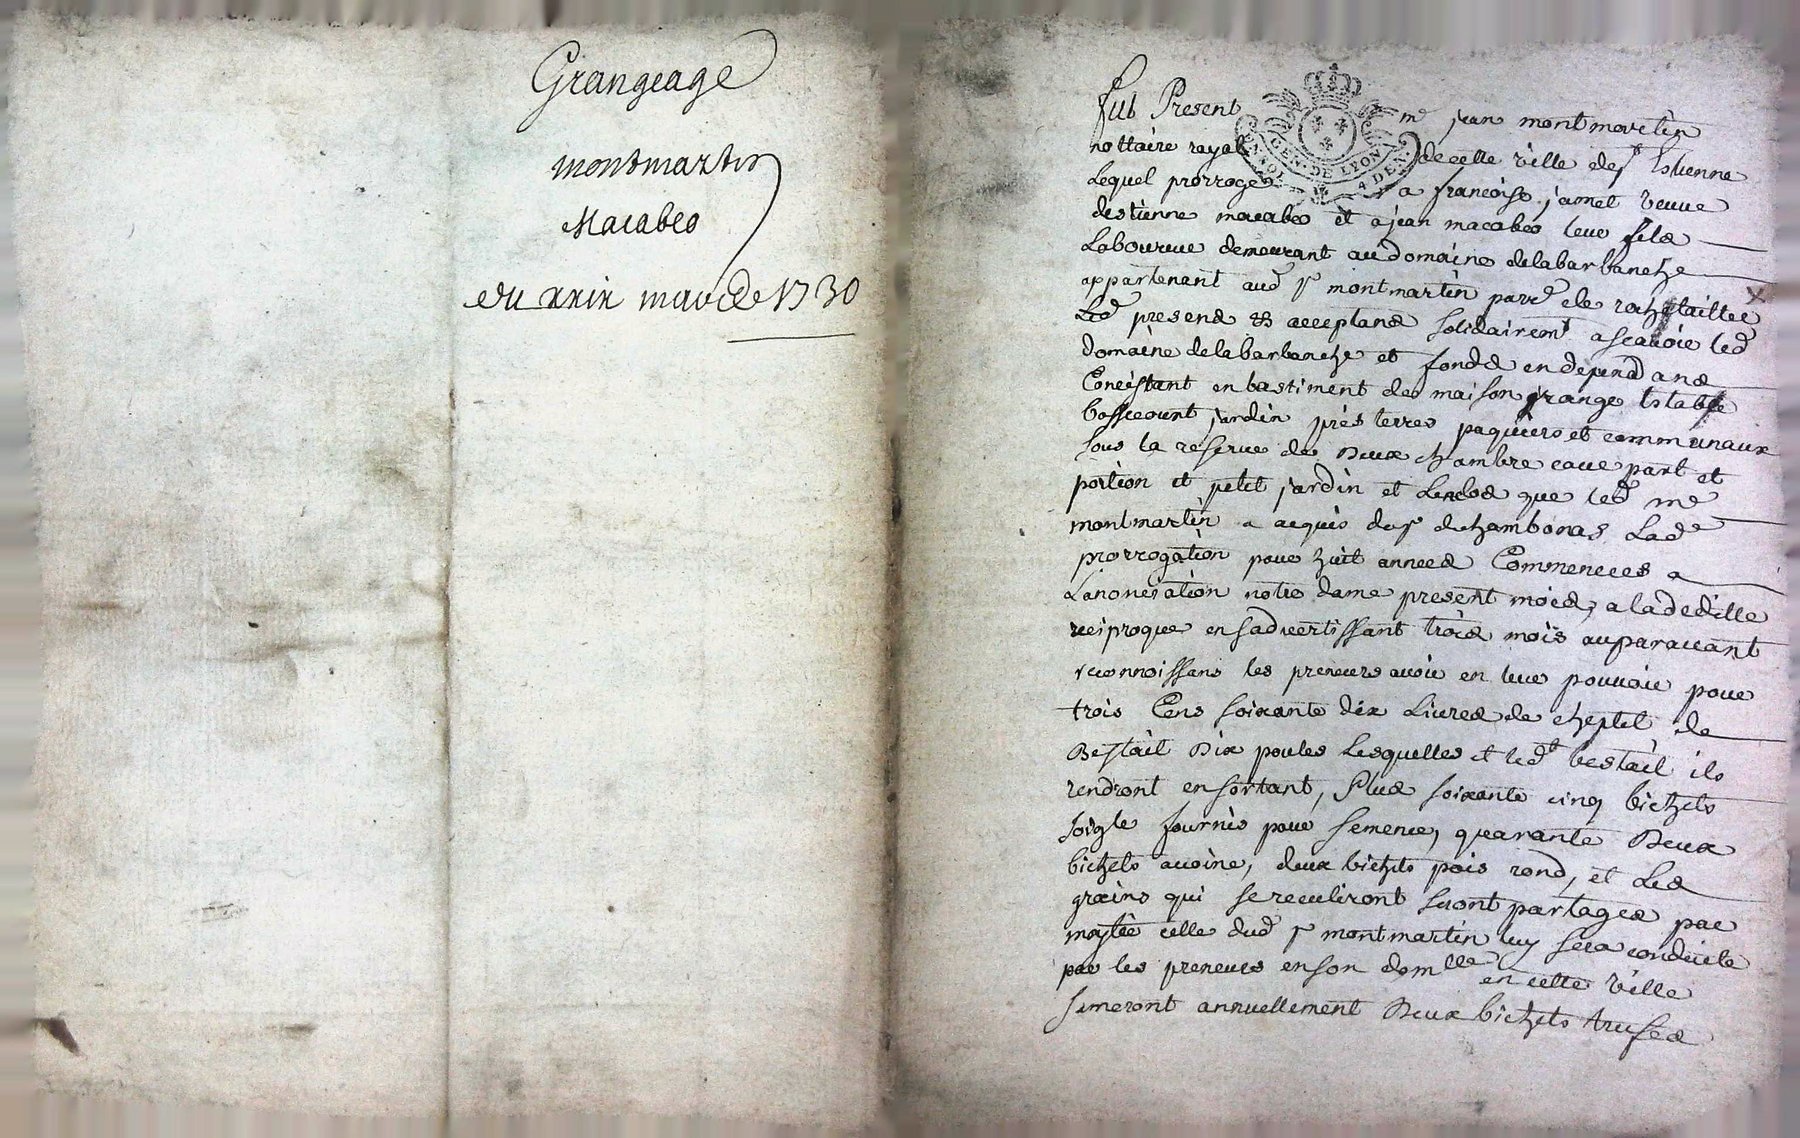 Grangeage
montmartin
Macabeo
du xxix mars de 1730
fut Present me jean montmartin
nottaire royal de cette ville de st Estienne
Lequel prorroge a francoise jamet veuve
destienne macabeo et a jean macabeo leur fils
Laboureur demeurant au domaine de la barbanche
appartenant aud sr montmartin parr de rochetaillee
Led presens et acceptans solidairemt ascavoir led
domaine de la barbanche et fonds en dependans
Concistant en bastiment de maison grange Estable
bassecourt jardin prés terres paquiers et communaux
sous la reserve de deux chambre cave part et
portion et petit jardin et Lenclos que led me
montmartin a acquis du sr de chambonas Lade
prorrogation pour huit années Commencees a
Lanonciation notre dame present mois, a la deditte
reciproque en sadvertissant trois mois auparavant
reconnoissans les preneurs avoir en leur pouvoir pour
trois Cens soixante dix Livres de cheptel de
Bestail Dix poules Lesquelles et led bestail ils
rendront en sortant, Plus soixante cinq bichets
soigle fournis pour semence, quarante Deux
bichets avoine, deux bichets pois rond, et Les
grains qui se recueliront seront partages par
moytie celle dud sr montmartin luy sera conduite
par les preneurs en son domlle en cette ville
semeront annuellement Deux bichets trufes
GEN. DE LYON
4 DEN.